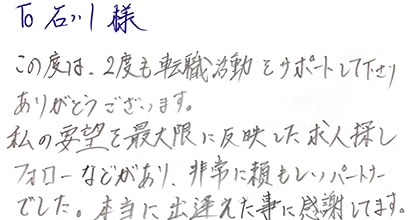 To 石川 様
この度は、2度も転職活動をサポートして下さり
ありがとうございます。
私の要望を最大限に反映した求人探し
フォローなどがあり、非常に頼もしいパートナー
でした。本当に出逢えた事に感謝してます。